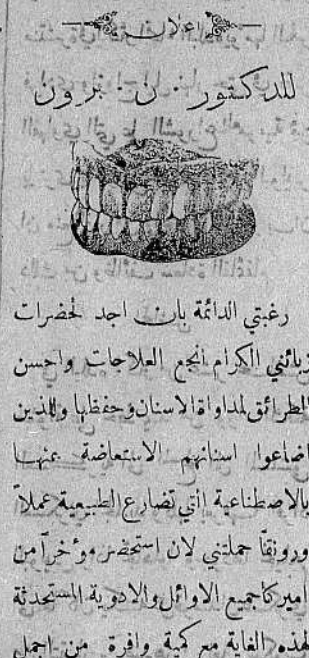 اعلان
للدكتور ٠ ن ٠ برون
رغبتي الدائمة بان اجد لحضرات
زبائني الكرام انجع العلاجات واحسن
الطرائق لمداواة الاسنان وحفظها وللذين
اضاعوا اسنانهم الاستعاضة عنها
بالاصطناعية التي تضارع الطبيعية عملاً
ورونقاً حملتني لان استحضر مؤخراً من
اميركا جميع الاوائل والادوية المستحدثة
لهذه الغاية مع كمية وافرة من اجمل